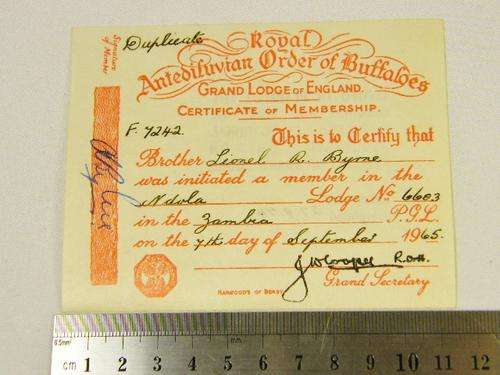 Duplicate
Signature of Member
Royal
Antediluvian Order of Buffaloes
GRAND LODGE OF ENGLAND.
CERTIFICATE OF MEMBERSHIP.
F. 7242.
This is to Certify that
Brother Lionel R. Byrne
was initiated a member in the
Ndola Lodge No 6603
in the Zambia P.G.L.
on the 7th day of September 1965.
R.O.H.
Grand Secretary
HARWOOD'S OF DERBY
0.5mm
cm 1 2 3 4 5 6 7 8 9 10 11 12